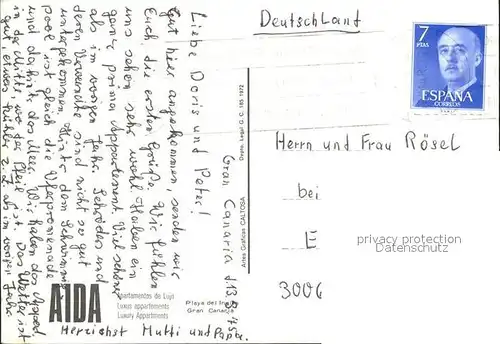 Deutschland
7
PTAS
ESPAÑA
CORREOS
Gran Canaria d. 13.3.75
Liebe Doris und Peter!
Gut hier angekommen, senden wir
Euch die ersten Grüße. Wir fühlen
uns sehr wohl. Haben ein
prima Appartement. Viel schöner
als im vorigen Jahr. Schröders und
deren Verwandte sind nicht so gut
untergekommen. Hinter dem Schwimm-
pool ist gleich die Uferpromenade
und dahinter das Meer. Wir haben das Apped
in der Mitte, wo der Pfeil ist. Das Wetter ist
gut, etwas kühler z.Z. als im vorigen Jahr.
Herzlichst Mutti und Papa.
Herrn und Frau Rösel
bei
E
3006
privacy protection
Datenschutz
AIDA
Apartamentos de Lujo
Luxus appartements
Luxury Appartments
Playa del Ingl
Gran Canaria
Artes Gráficas CALTOSA
Depto. Legal G. C. 185 1972